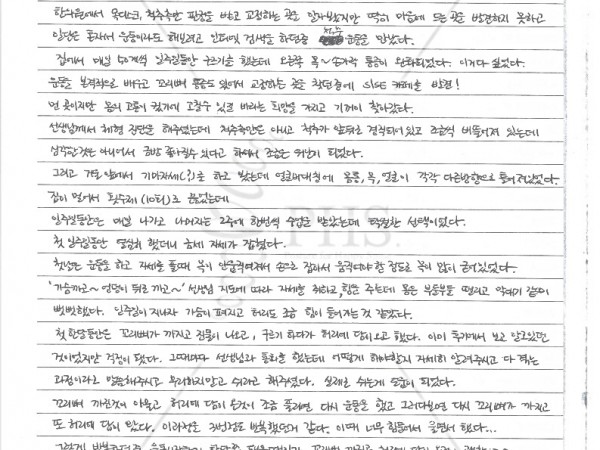 한의원에서 목디스크, 척추측만 판정을 받고 교정하는 곳은 알아봤지만 딱히 마음에 드는 곳을 발견하지 못하고
일단은 혼자서 운동이라도 해보려고 인터넷 검색을 하던중 척추운동을 만났다.
집에서 매일 50개씩 일주일동안 구르기를 했는데 오른쪽 목~ 통증이 완화되었다. 이거다 싶었다.
운동을 본격적으로 배우고 꼬리뼈 통증도 있어서 교정하는 곳을 찾던중에 SNPE 카페를 발견!
먼 곳이지만 몸의 고통이 컸기에 고칠수 있길 바라는 희망을 가지고 기꺼이 찾아갔다.
선생님께서 체형 진단을 해주셨는데 척추측만은 아니고 척추가 앞뒤로 경직되어있고 조금씩 비뚤어져 있는데
심각한것은 아니어서 금방 좋아질수 있다고 하여서 조금은 위안이 되었다.
그리고 거울 앞에서 기마자세(?)를 하고 봤는데 엉덩이 몸통, 목, 얼굴이 각각 다른방향으로 틀어져있었다.
집이 멀어서 횟수제 (10회)로 끊었는데
일주일동안은 매일 나가고 나머지는 2주에 한번씩 수업을 받았는데 탁월한 선택이었다.
첫 일주일동안 열심히 했더니 금세 자세가 잡혔다.
첫날은 운동을 하고 자세를 풀때 목이 안움직여져서 손으로 잡아서 움직여야 할 정도로 목이 많이 굳어있었다.
'가슴까고~ 엉덩이 뒤로 까고~' 선생님 지도에 따라 자세를 취하고, 힘을 주는데 몸은 부들부들 떨리고 막대기 같이
뻣뻣했다. 일주일이 지나자 가슴이 펴지고 허리도 조금 힘이 들어가는 것 같았다.
첫 한달동안은 꼬리뼈가 까지고 진물이 나오고, 구르기 하다가 허리에 담이오고 했다. 이미 후기에서 보고 알고있던
것이었지만 걱정이 됐다. 그때마다 선생님과 통화를 했는데 어떻게 해야할지 자세히 알려주시고 다 겪는
과정이라고 말씀해주시고 무리하지말고 쉬라고 해주셨다. 실제로 쉬는게 도움이 되었다.
꼬리뼈 까진것이 아물고, 허리에 담이 온것이 조금 풀리면 다시 운동을 했고 그러다보면 다시 꼬리뼈가 까지고
또 허리에 담이 왔다. 이 과정은 3번정도 반복했던거 같다. 이때 너무 힘들어서 울면서 했다...